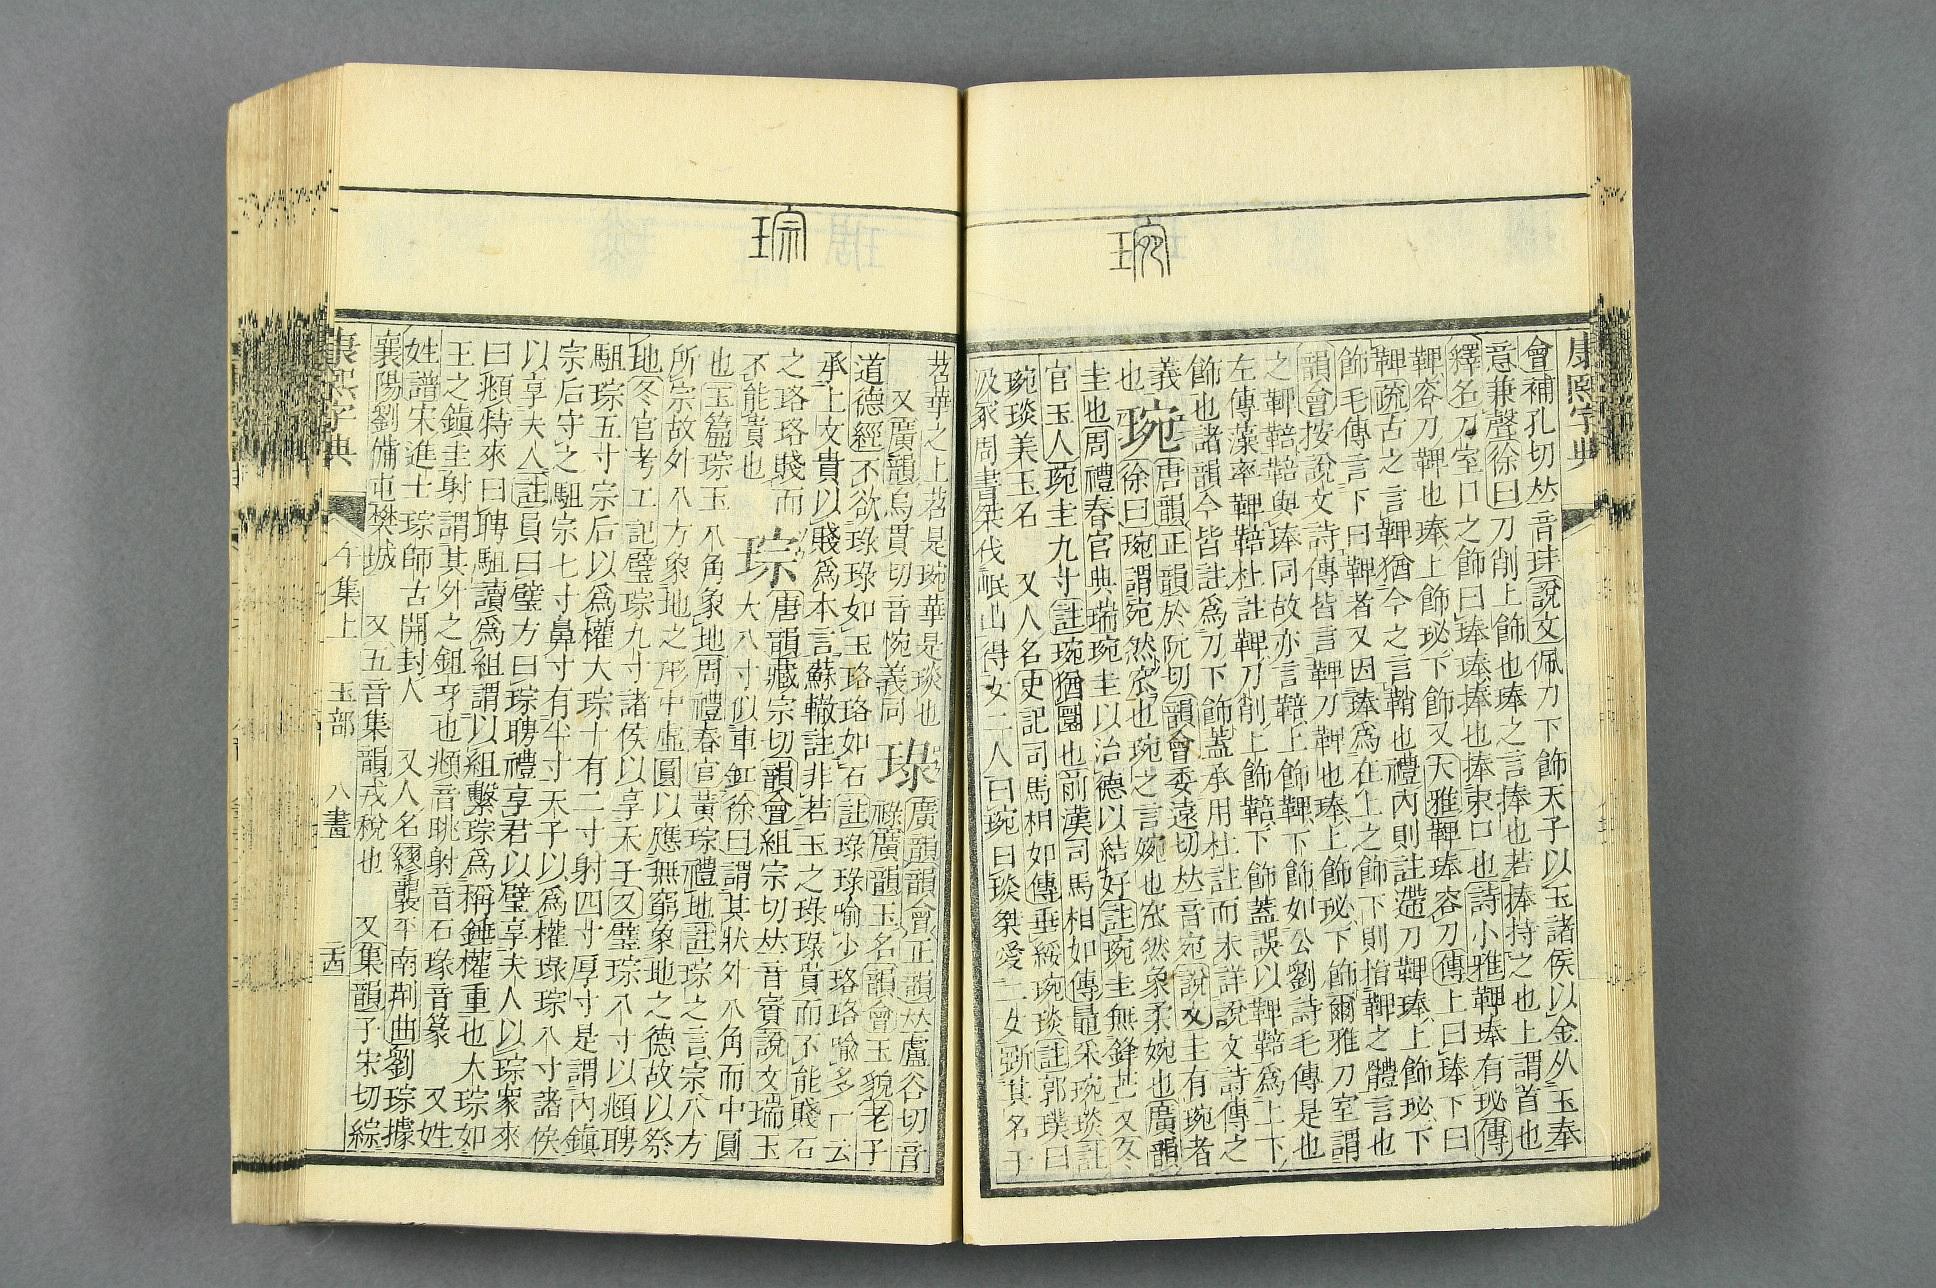 琬
康熙字典
會補孔切𠀤音琫說文佩刀下飾天子以玉諸侯以金从玉奉
意兼聲徐曰刀削上飾也琫之言捧也若捧持之也上謂首也
釋名刀室口之飾曰琫琫捧也捧束口也詩小雅鞞琫有珌傳
鞞容刀鞞也琫上飾珌下飾又大雅鞞琫容刀傳上曰琫下曰
鞞疏古之言鞞猶今之言鞘也禮內則註遰刀鞞琫上飾珌下
飾毛傳言下曰鞞者又因琫爲在上之飾下則指鞞之體言也
韻會按說文詩傳皆言鞞刀鞞也琫上飾珌下飾爾雅刀室謂
之鞞鞛鞛與琫同故亦言鞛上飾鞞下飾如公劉詩毛傳是也
左傳藻率鞞鞛杜註鞞刀削上飾鞛下飾蓋誤以鞞鞛爲上下
飾也諸韻今皆註爲刀下飾蓋承用杜註而未詳說文詩傳之
義
琬
唐韻正韻於阮切韻會委遠切𠀤音宛說文圭有琬者
也
徐曰琬謂宛然窊也琬之言婉也窊然象柔婉也廣韻
圭也周禮春官典瑞琬圭以治德以結好註琬圭無鋒芒又冬
官玉人琬圭九寸註琬猶圜也前漢司馬相如傳鼂采琬琰註
琬琰美玉名 又人名史記司馬相如傳垂綏琬琰註郭璞曰
汲冢周書桀伐岷山得女二人曰琬曰琰桀愛二女斲其名于
琮
苕華之上苕是琬華是琰也
又廣韻烏貫切音惋義同
琭
廣韻韻會正韻𠀤盧谷切音
祿廣韻玉名韻會玉貌老子
道德經不欲琭琭如玉珞珞如石註琭琭喻少珞珞喻多一云
承上文貴以賤爲本言蘇轍註非若玉之琭琭貴而不能賤石
之珞珞賤而
不能貴也
琮
唐韻藏宗切韻會組宗切𠀤音賨說文瑞玉
大八寸似車釭徐曰謂其狀外八角而中圓
也玉篇琮玉八角象地周禮春官黃琮禮地註琮之言宗八方
所宗故外八方象地之形中虛圓以應無窮象地之德故以祭
地冬官考工記璧琮九寸諸侯以享天子又璧琮八寸以頫聘
駔琮五寸宗后以爲權大琮十有二寸射四寸厚寸是謂內鎮
宗后守之駔宗七寸鼻寸有半寸天子以爲權瑑琮八寸諸侯
以享夫人註員曰璧方曰琮聘禮享君以璧享夫人以琮衆來
曰頫特來曰聘駔讀爲組謂以組繫琮爲稱錘權重也大琮如
王之鎮圭射謂其外之鉏牙也頫音眺射音石瑑音篆 又姓
姓譜宋進士琮師古開封人 又人名繆襲平南荆曲劉琮據
襄陽劉備屯樊城 又五音集韻戎稅也 又集韻子宋切綜
康熙字典
午集上 玉部 八畫